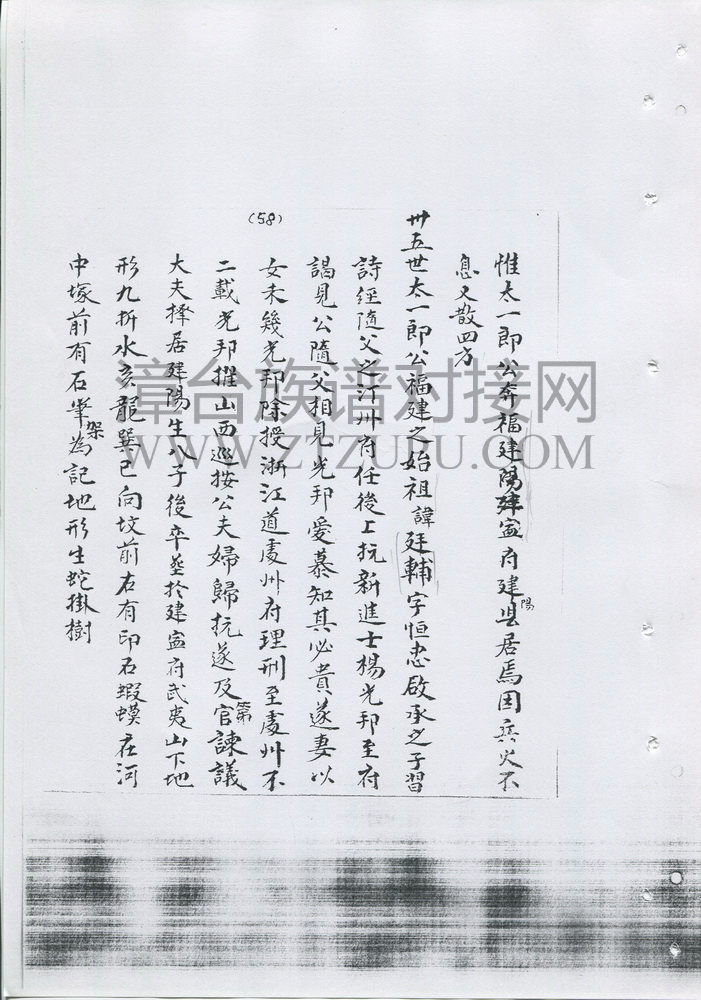 惟太一郎公奔福建陽建寧府建陽县居焉因兵火不
息又散四方
卅五世太一郎公福建之始祖諱廷輔字恒忠啟承之子習
詩經隨父之汀州府任後上抗新進士楊光邦至府
謁見公隨父相見光邦愛慕知其必貴遂妻以
女未幾光邦除授浙江道處州府理刑至處州不
二載光邦擢山西巡按公夫婦歸抗遂及第官諫議
大夫擇居建陽生八子後卒葬於建寧府武夷山下地
形九折水亥龍巽巳向坟前右有印石蝦蟆在河
中塚前有石筆架為記地形生蛇掛樹
(58)
漳台族谱对接网
WWW.ZTZUPU.COM